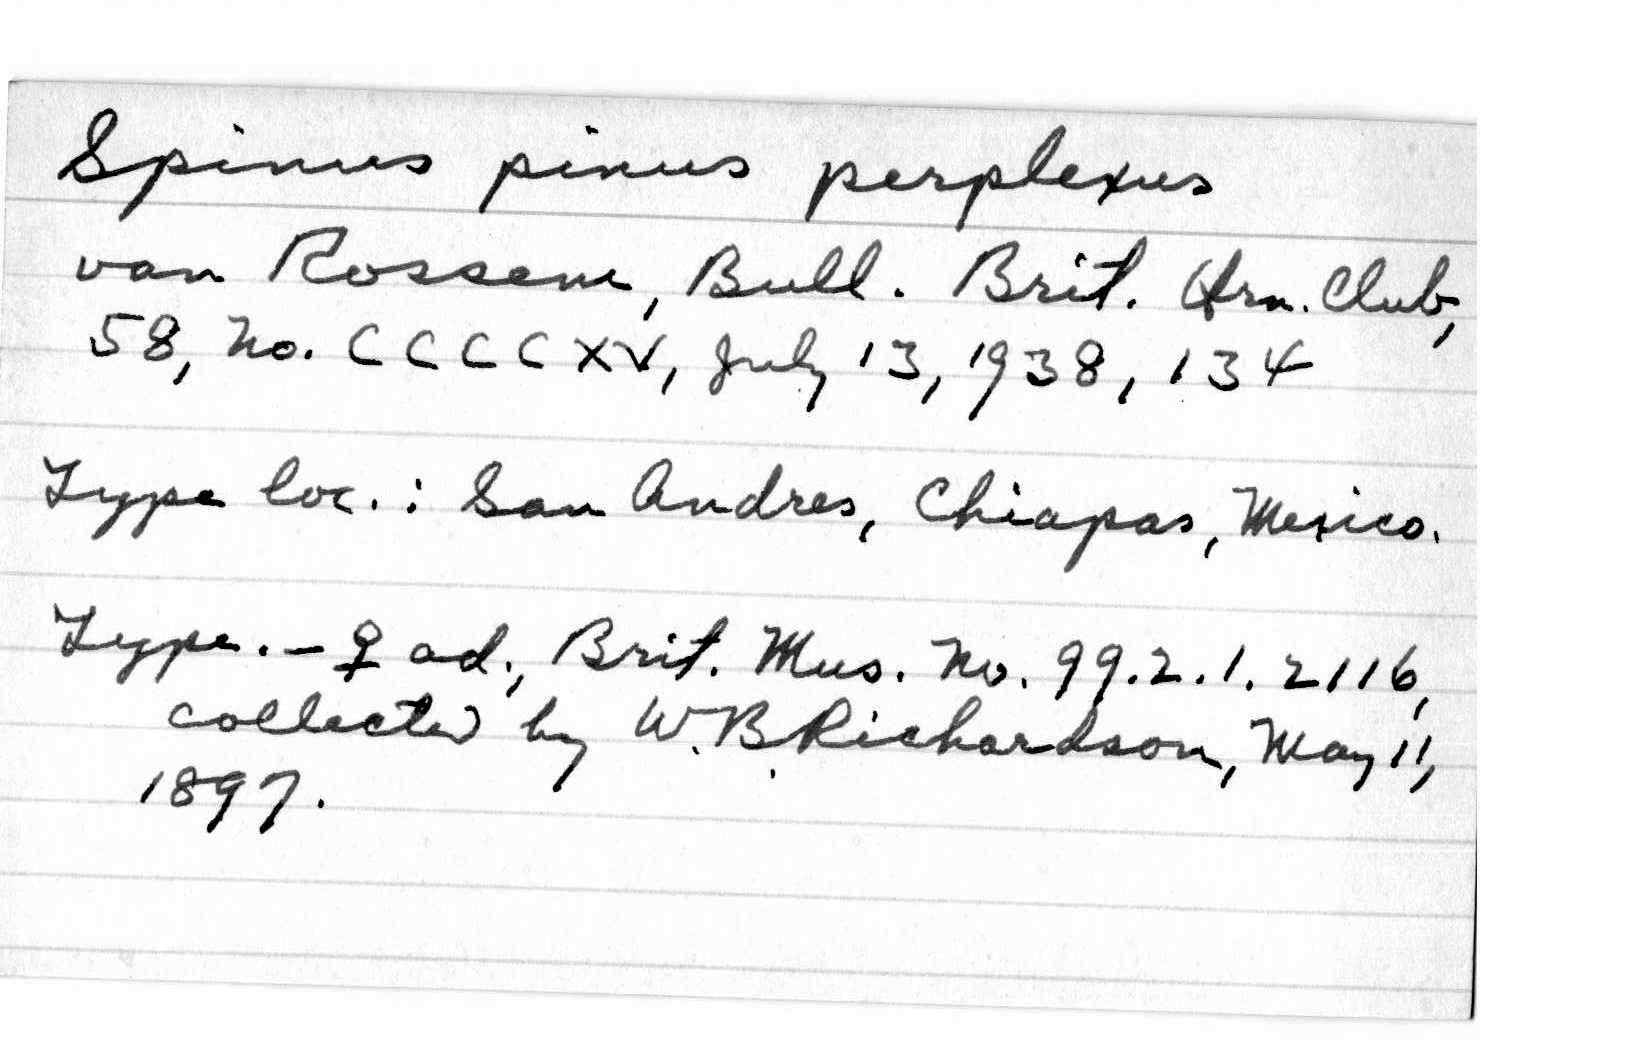 Spinus pinus perplexus
van Rossem, Bull. Brit. Orn. Club,
58, No. CCCCXV, July 13, 1938, 134
Type loc.: San Andres, Chiapas, Mexico.
Type. - ♀ ad., Brit. Mus. No. 99.2.1.2116,
collected by W.B. Richardson, May 11,
1897.